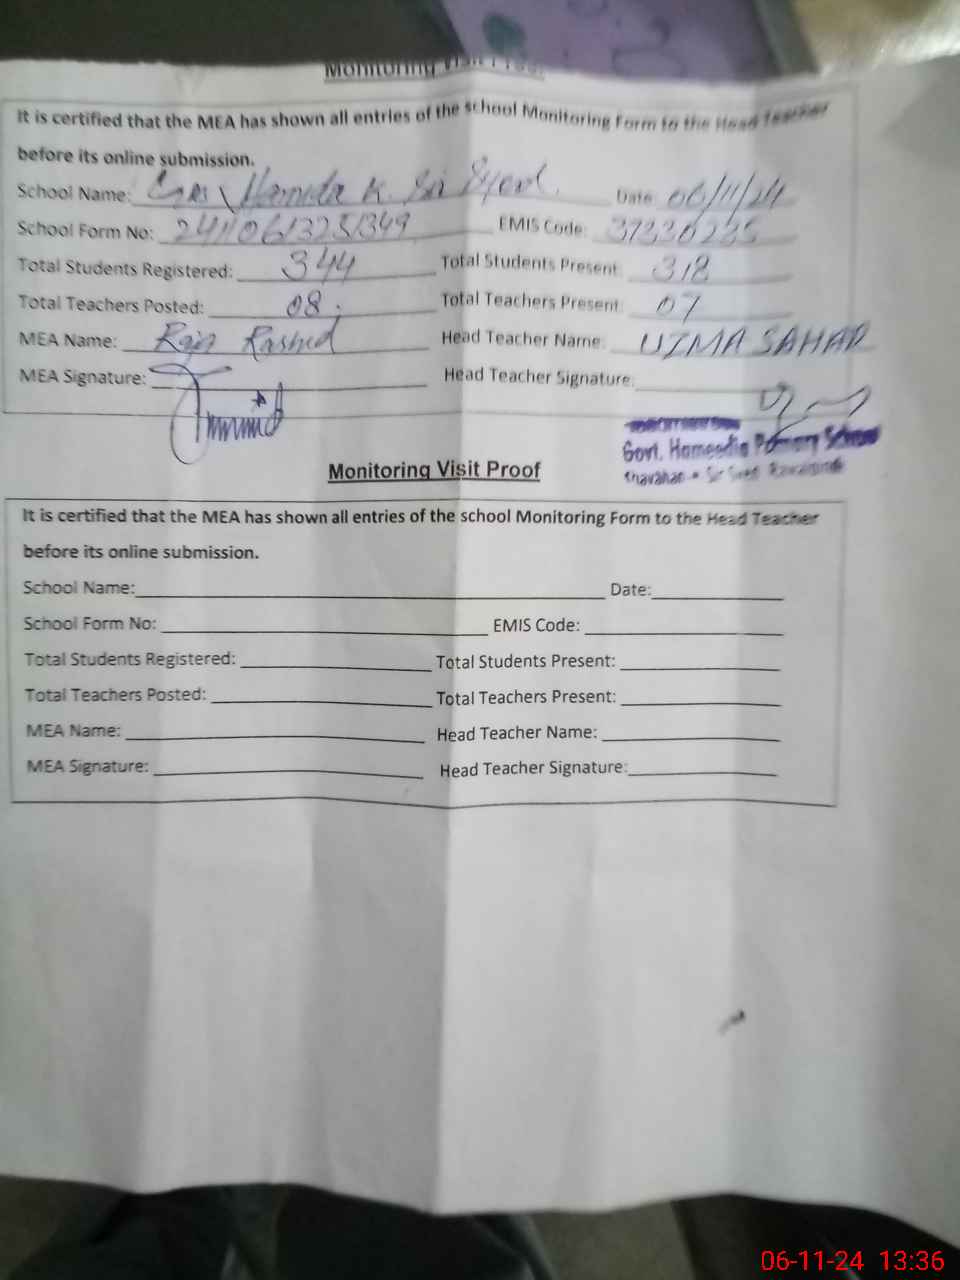 Monitoring Visit Proof
It is certified that the MEA has shown all entries of the school Monitoring Form to the Head Teacher
before its online submission.
School Name: K. Sir Syed. Date: 06/11/24
School Form No: 24110613251349 EMIS Code: 37330235
Total Students Registered: 344 Total Students Present: 318
Total Teachers Posted: 08. Total Teachers Present: 07
MEA Name: Raja Rashid Head Teacher Name: UZMA SAHAR
MEA Signature: Head Teacher Signature:
Govt. Hameedia Primary School
Monitoring Visit Proof
It is certified that the MEA has shown all entries of the school Monitoring Form to the Head Teacher
before its online submission.
School Name: Date:
School Form No: EMIS Code:
Total Students Registered: Total Students Present:
Total Teachers Posted: Total Teachers Present:
MEA Name: Head Teacher Name:
MEA Signature: Head Teacher Signature:
06-11-24 13:36